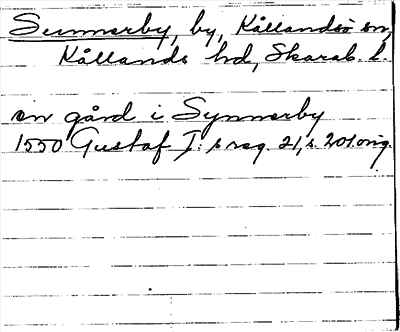 Sunnerby, by, Kållandsö sn,
Kållands hd, Skarab. l.
en gård i Synnerby
1550 Gustaf I: s reg. 21, s. 201. orig.